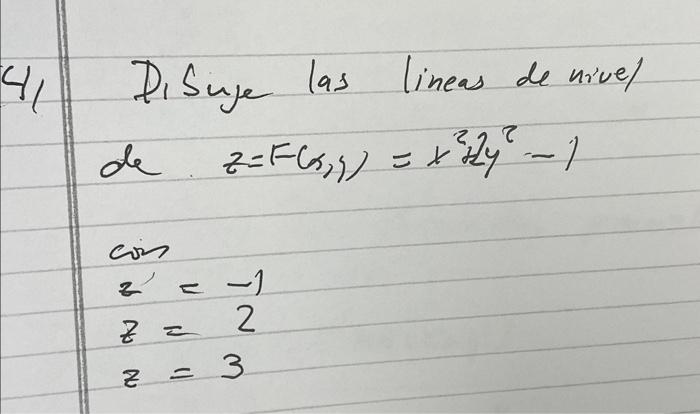 4,
Dibuje las lineas de nivel
de z=F(x,y) = x²+2y² - 1
con
z = -1
z = 2
z = 3